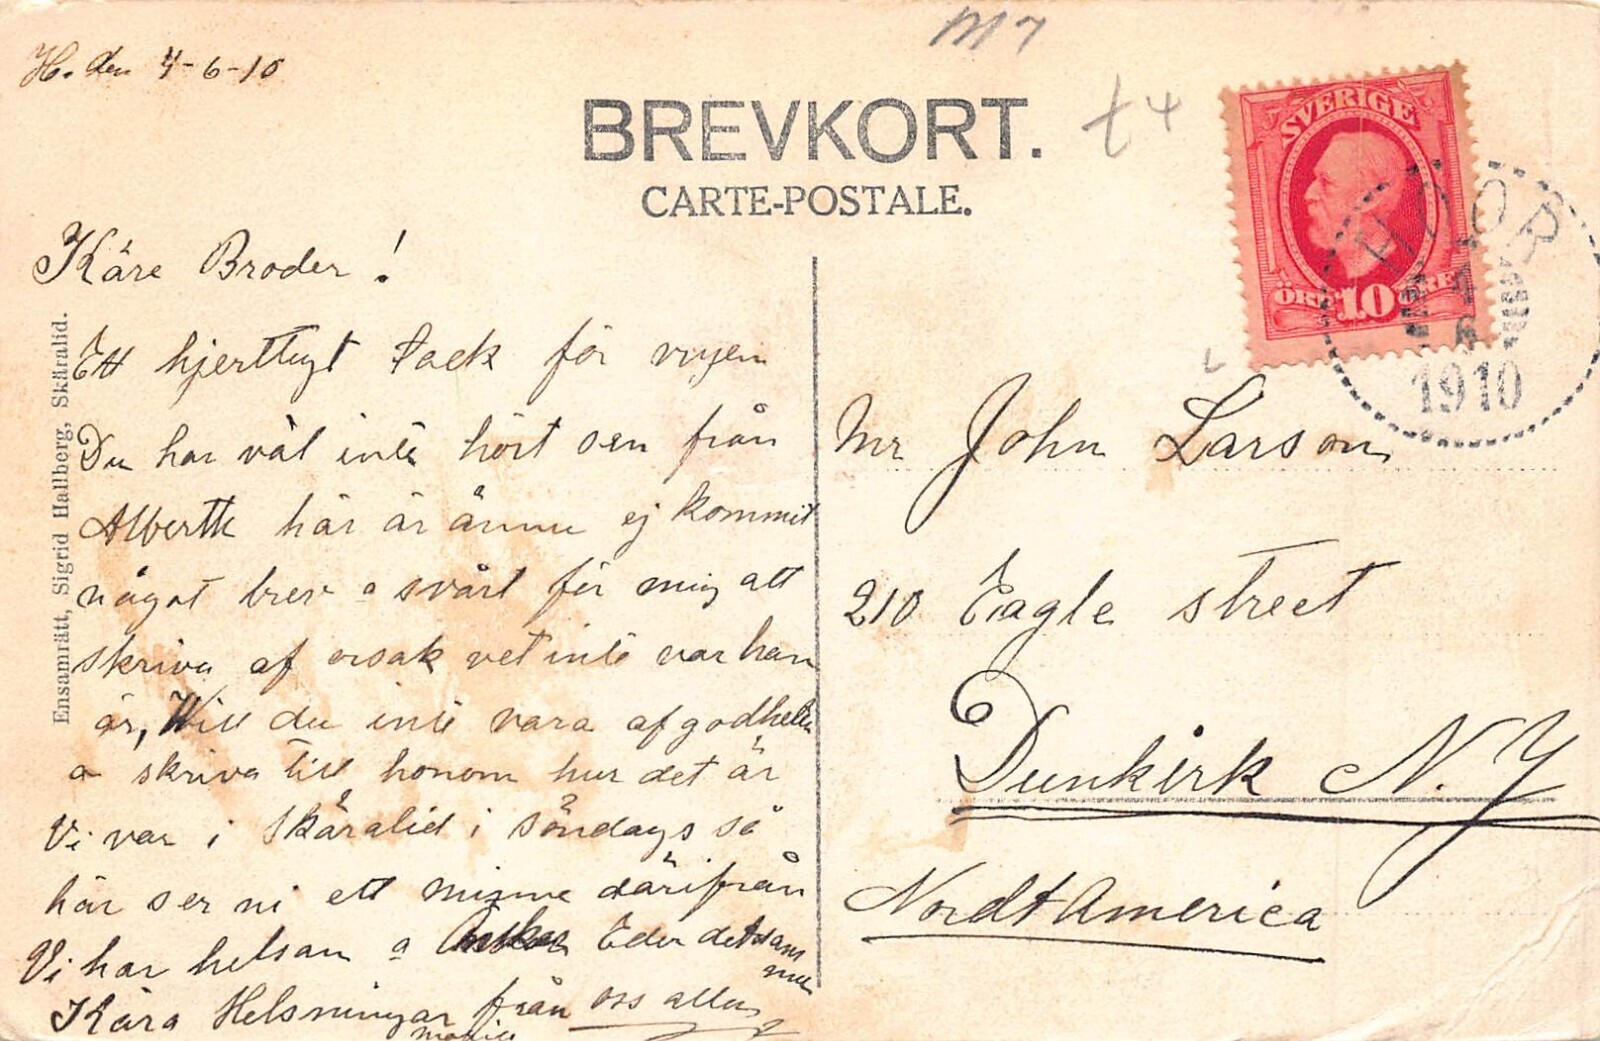 H. den 4-6-10
M 7
t 4
BREVKORT.
CARTE-POSTALE.
SVERIGE
ÖRE 10 ÖRE
HÖÖR
4
6
1910
Ensamrätt, Sigrid Hallberg, Skäralid.
Käre Broder!
Ett hjerttligt tack för vyen
Du har väl inte hört sen från
här är ännu ej kommit
något brev o svårt för mig att
skriva af orsak vet inte var han
är, Will du inte vara af godheten
o skriva till honom hur det är
Vi var i Skäralid i Söndags så
här ser ni ett minne därifrån
Vi har helsan o önskar Eder detsam
ma
Kära Helsningar från oss alla
Mr John Larson
210 Eagle street
Dunkirk N.Y
Nordt America